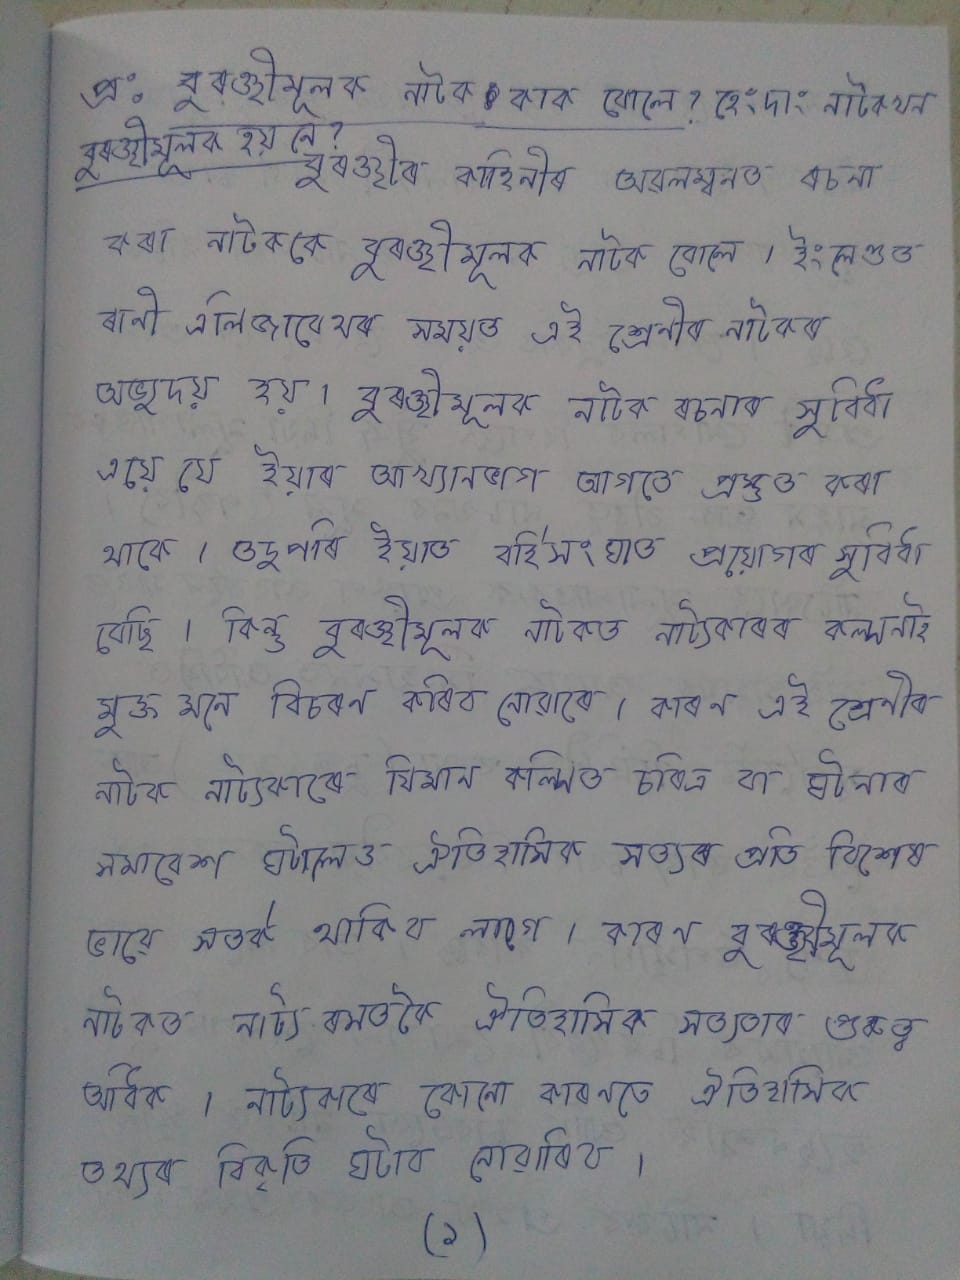 প্ৰ: বুৰঞ্জীমূলক নাটক কাক বোলে? হেংদাং নাটকখন
বুৰঞ্জীমূলক হয় নে?
বুৰঞ্জীৰ কাহিনীৰ অৱলম্বনত ৰচনা
কৰা নাটককে বুৰঞ্জীমূলক নাটক বোলে । ইংলেণ্ডত
ৰানী এলিজাবেথৰ সময়ত এই শ্ৰেনীৰ নাটকৰ
অভ্যুদয় হয় । বুৰঞ্জীমূলক নাটক ৰচনাৰ সুবিধা
এয়ে যে ইয়াৰ আখ্যানভাগ আগতে প্ৰস্তুত কৰা
থাকে । তদুপৰি ইয়াত বৰ্হিসংঘাত প্ৰয়োগৰ সুবিধা
বেছি । কিন্তু বুৰঞ্জীমূলক নাটকত নাট্যকাৰৰ কল্পনাই
মুক্ত মনে বিচৰণ কৰিব নোৱাৰে । কাৰণ এই শ্ৰেনীৰ
নাটক নাট্যকাৰে যিমান কল্পিত চৰিত্ৰ বা ঘটনাৰ
সমাবেশ ঘটালেও ঐতিহাসিক সত্যৰ প্ৰতি বিশেষ
ভাবে সতৰ্ক থাকিব লাগে । কাৰণ বুৰঞ্জীমূলক
নাটকত নাট্য ৰসতকৈ ঐতিহাসিক সত্যতাৰ গুৰুত্ব
অধিক । নাট্যকাৰে কোনো কাৰণতে ঐতিহাসিক
তথ্যৰ বিকৃতি ঘটাব নোৱাৰিব ।
(১)